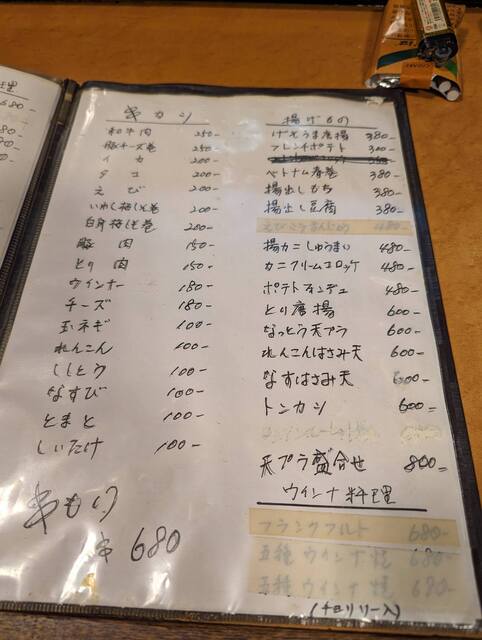 串カツ
和牛肉 250-
豚チーズ巻 250-
イカ 200-
タコ 200-
えび 200-
いわし梅しそ巻 200-
白身梅しそ巻 200-
豚肉 150-
とり肉 150-
ウインナー 180-
チーズ 180-
玉ネギ 100-
れんこん 100-
ししとう 100-
なすび 100-
とまと 100-
しいたけ 100-
串もり
680
揚げもの
げそうま唐揚 380-
フレンチポテト 380-
ベトナム春巻 380-
揚出しもち 380-
揚出し豆腐 380-
480-
揚カニしゅうまい 480-
カニクリームコロッケ 480-
ポテトフォンデュ 480-
とり唐揚 600-
なっとう天プラ 600-
れんこんはさみ天 600-
なすはさみ天 600-
トンカツ 600-
天プラ盛合せ 800-
ウインナ料理
フランクフルト 680-
五種ウインナ焼 680-
五種ウインナ 680-
(チョリソー入)
680-